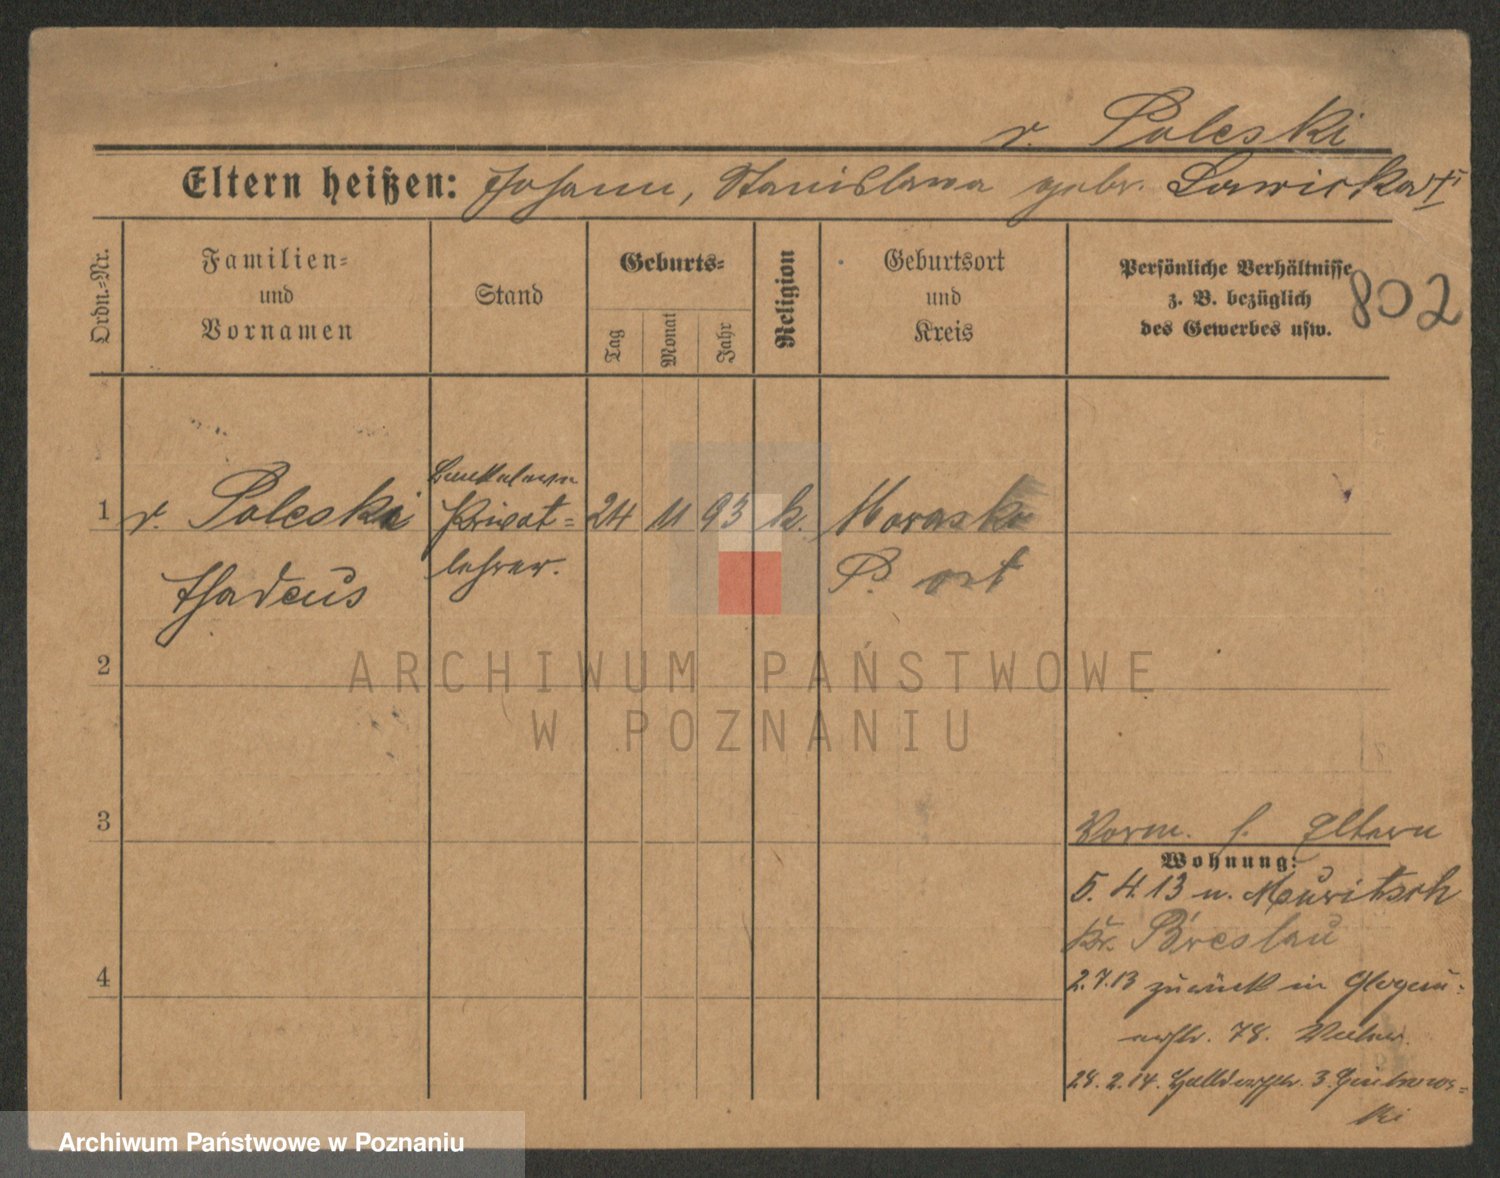 v. Poleski
Eltern heißen: Johann, Stanislawa gebr. Lawicka
Ordn.-Nr.
Familien-
und
Vornamen
Stand
Geburts-
Tag
Monat
Jahr
Religion
Geburtsort
und
Kreis
Persönliche Verhältnisse
z. B. bezüglich
des Gewerbes usw.
802
1 v. Poleski
Thadeus
Privat-
lehrer.
24 11 93 k.
Morasko
P. ost
2
3
4
Vorm. s. Eltern
Wohnung:
5. 4. 13 n. Meuritsch
Kr. Breslau
2.7.13 zurück in Glogau-
erstr. 78.
28. 2. 14. 3.
ki
ARCHIWUM PAŃSTWOWE
W POZNANIU
Archiwum Państwowe w Poznaniu